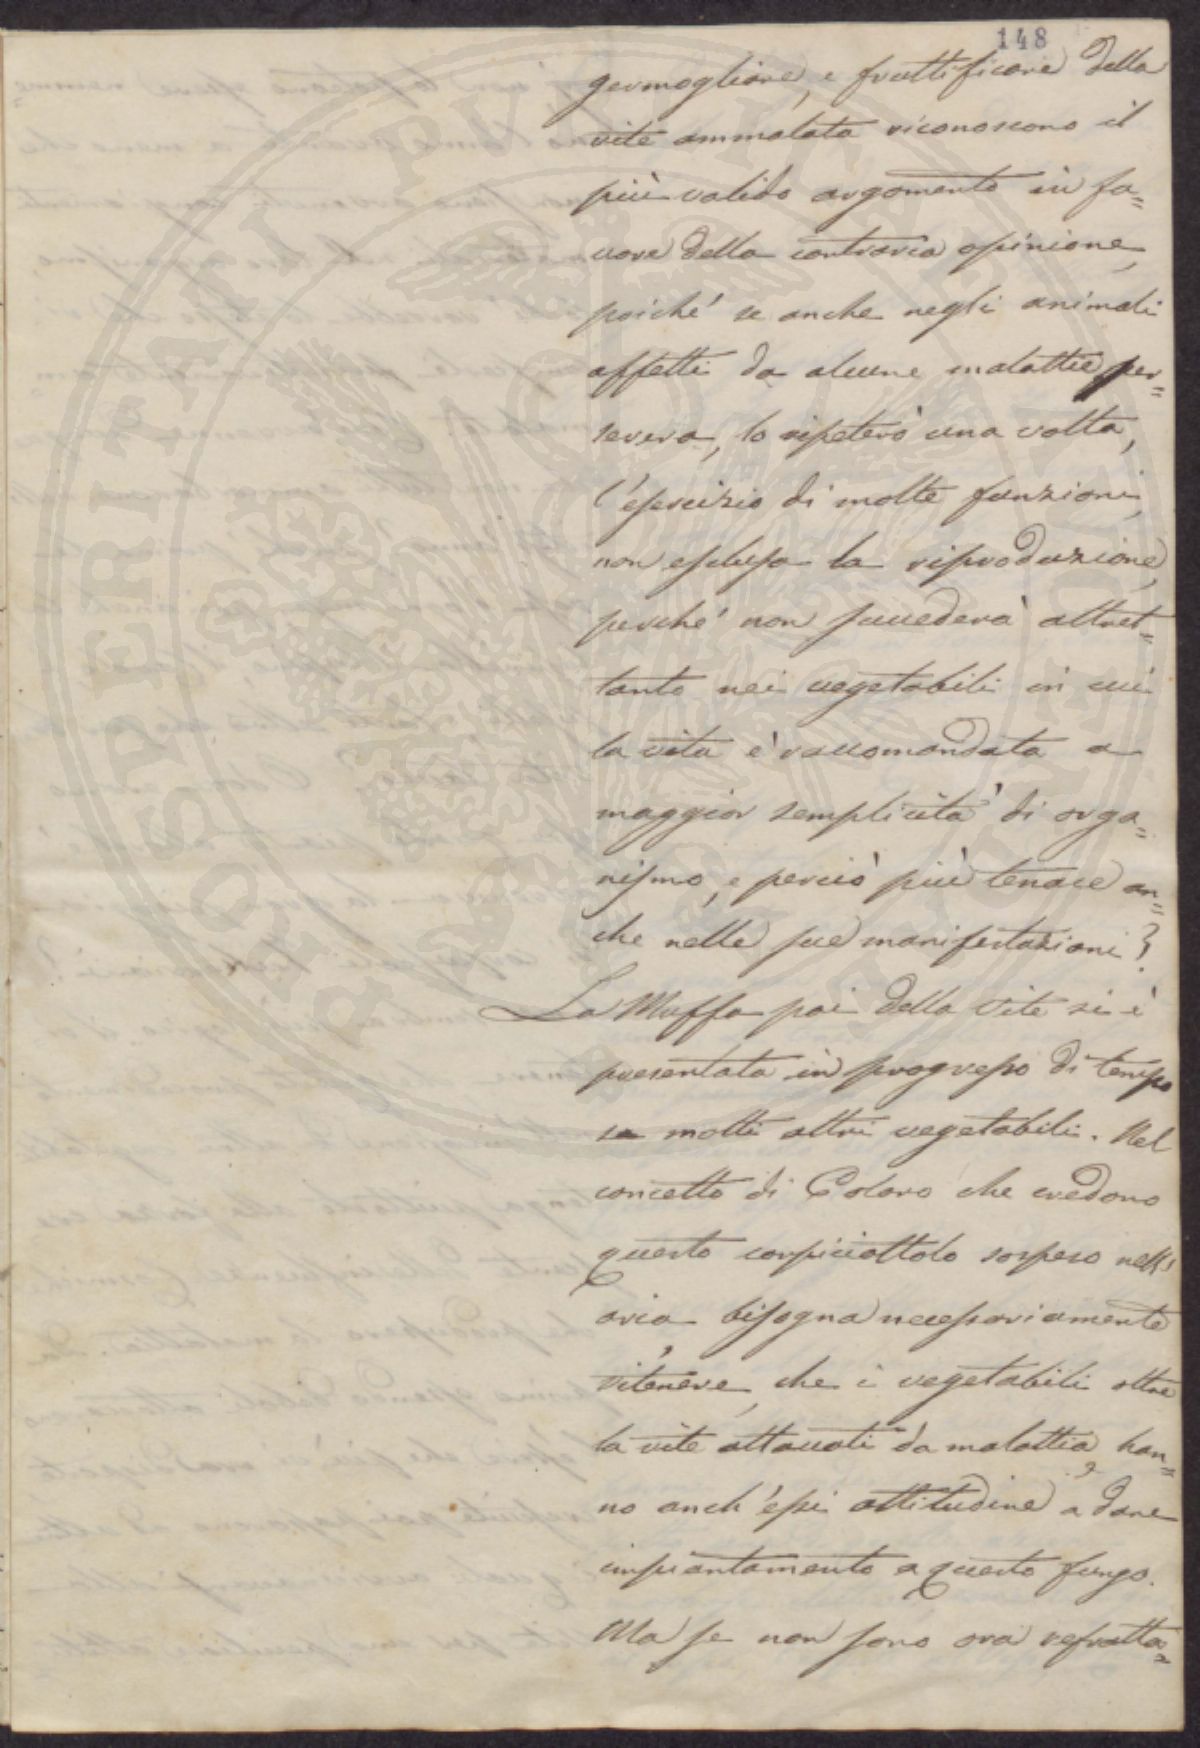 148
germogliare, e fruttificare della
vite ammalata riconoscono il
più valido argomento in fa=
vore della contraria opinione,
poiché se anche negli animali
affetti da alcune malattie per=
severa, lo ripeterò una volta,
l'esercizio di molte funzioni,
non esclusa la riproduzione,
perché non succederà altret=
tanto nei vegetabili in cui
la vita è raccomandata a
maggior semplicità di orga=
nismo, e perciò più tenace an=
che nelle sue manifestazioni?
La Muffa poi della Vite si è
presentata in progresso di tempo
su molti altri vegetabili. Nel
concetto di Coloro che credono
questo corpiciottolo sospeso nell'
aria bisogna necessariamente
ritenere, che i vegetabili oltre
la vite attaccati da malattia, han=
no anch'essi attitudine a dare
impiantamento a questo fungo.
Ma se non sono ora refratta=
PROSPERITATI PVBLICAE AVGENDAE